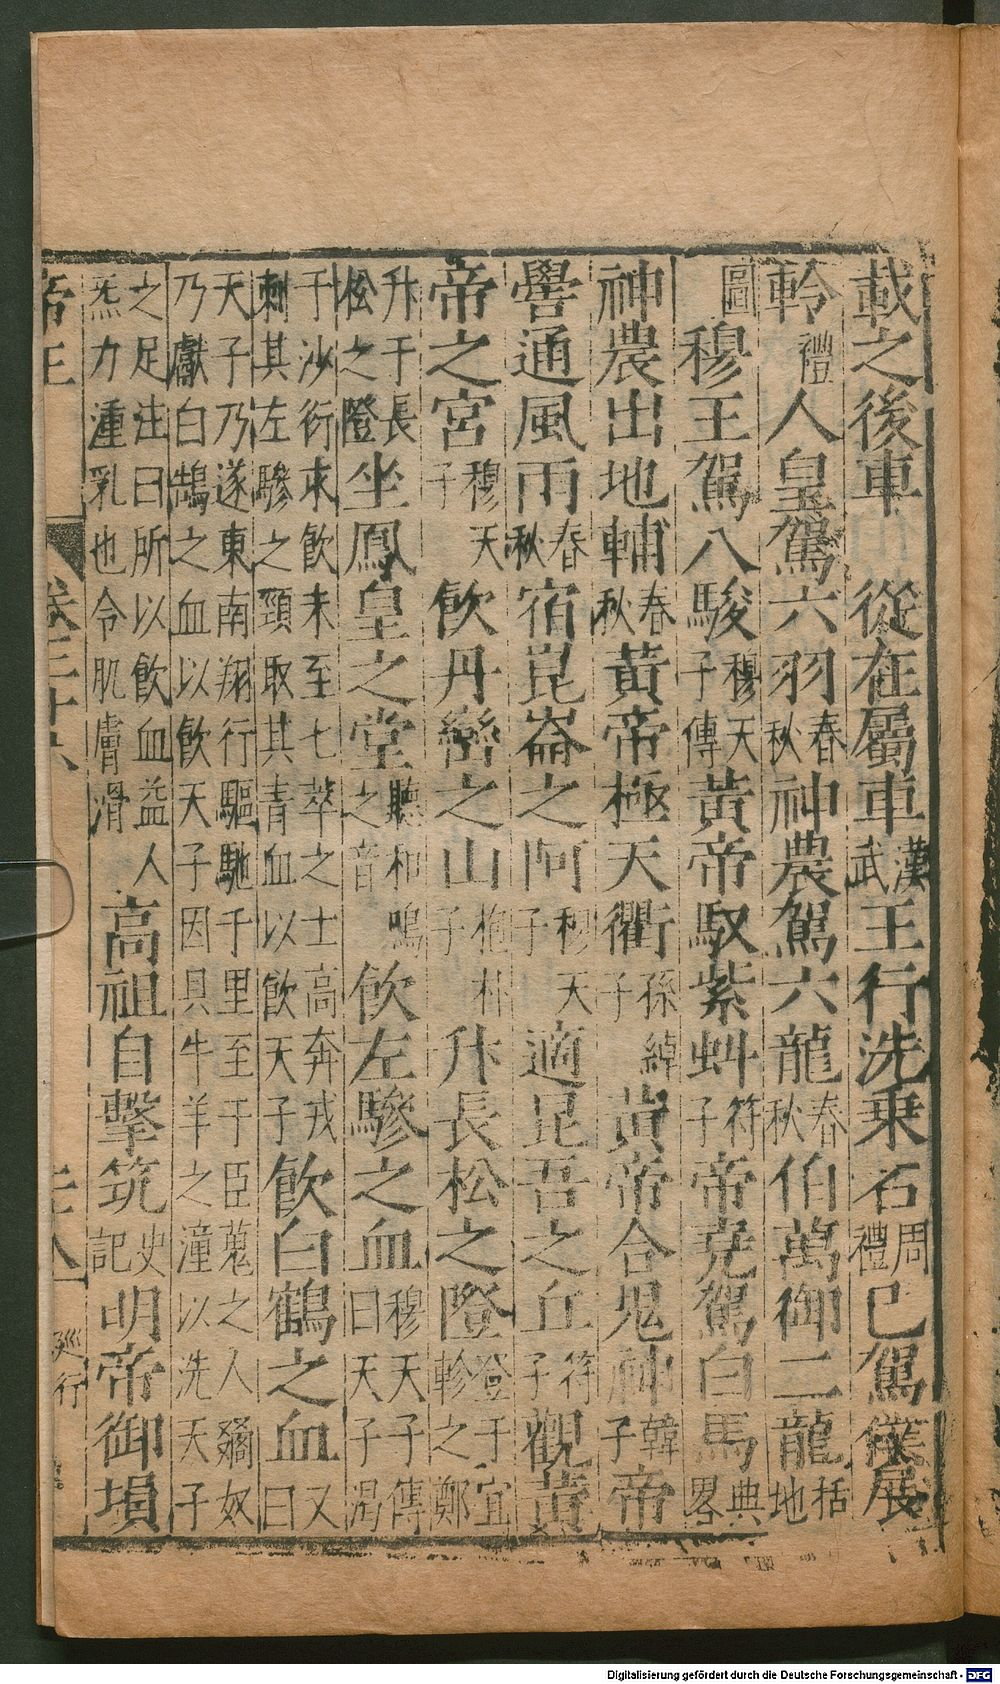 載之後車　從在屬車漢武王行洗乗石周禮巳駕僕展
軨禮人皇駕六羽春秋神農駕六龍春秋伯萬御二龍括地
圖穆王駕八駿穆天子傳黃帝馭紫虯符子帝堯駕白馬典畧
神農出地輔春秋黃帝極天衢孫綽子黃帝合鬼神韓子帝
嚳通風雨春秋宿崑崙之阿穆天子適昆吾之丘符子觀黃
帝之宮穆天子飲丹巒之山抱朴子升長松之隥登于宜軫之鄭
升于長松之隥坐鳳皇之堂聽和鳴之音飲左驂之血穆天子傳曰天子渴
于沙衍求飲未至七萃之士高奔戎刺其左驂之頸取其青血以飲天子飲白鶴之血又曰
天子乃遂東南翔行驅馳千里至于臣蒐之人㺒奴乃獻白鵠之血以飲天子因具牛羊之湩以洗天子
之足注曰所以飲血益人炁力湩乳也令肌膚滑高祖自擊筑史記明帝御塤
帝王　卷三十六　巡行
Digitalisierung gefördert durch die Deutsche Forschungsgemeinschaft - DFG